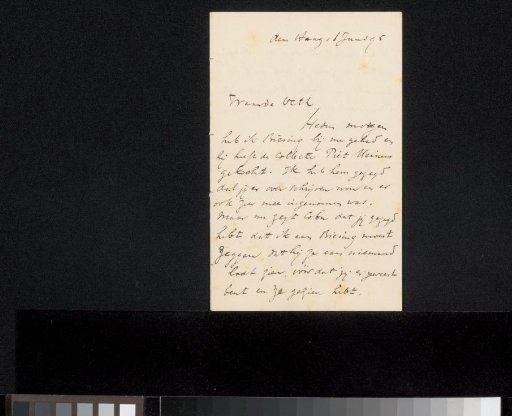 den Haag 18 Juni 95
Waarde Veth
Heden morgen
heb ik Biesing bij me gehad en
hij heeft de collectie Piet Meiners
gekocht. Ik heb hem gezegd
dat je er over schrijven wou en er
ook zeer mee ingenomen was.
Maar nu zegt Cobu dat jij gezegd
hebt dat ik aan Biesing moest
zeggen, dat hij ze aan niemand
laat zien, voor dat jij er geweest
bent en ze gezien hebt.